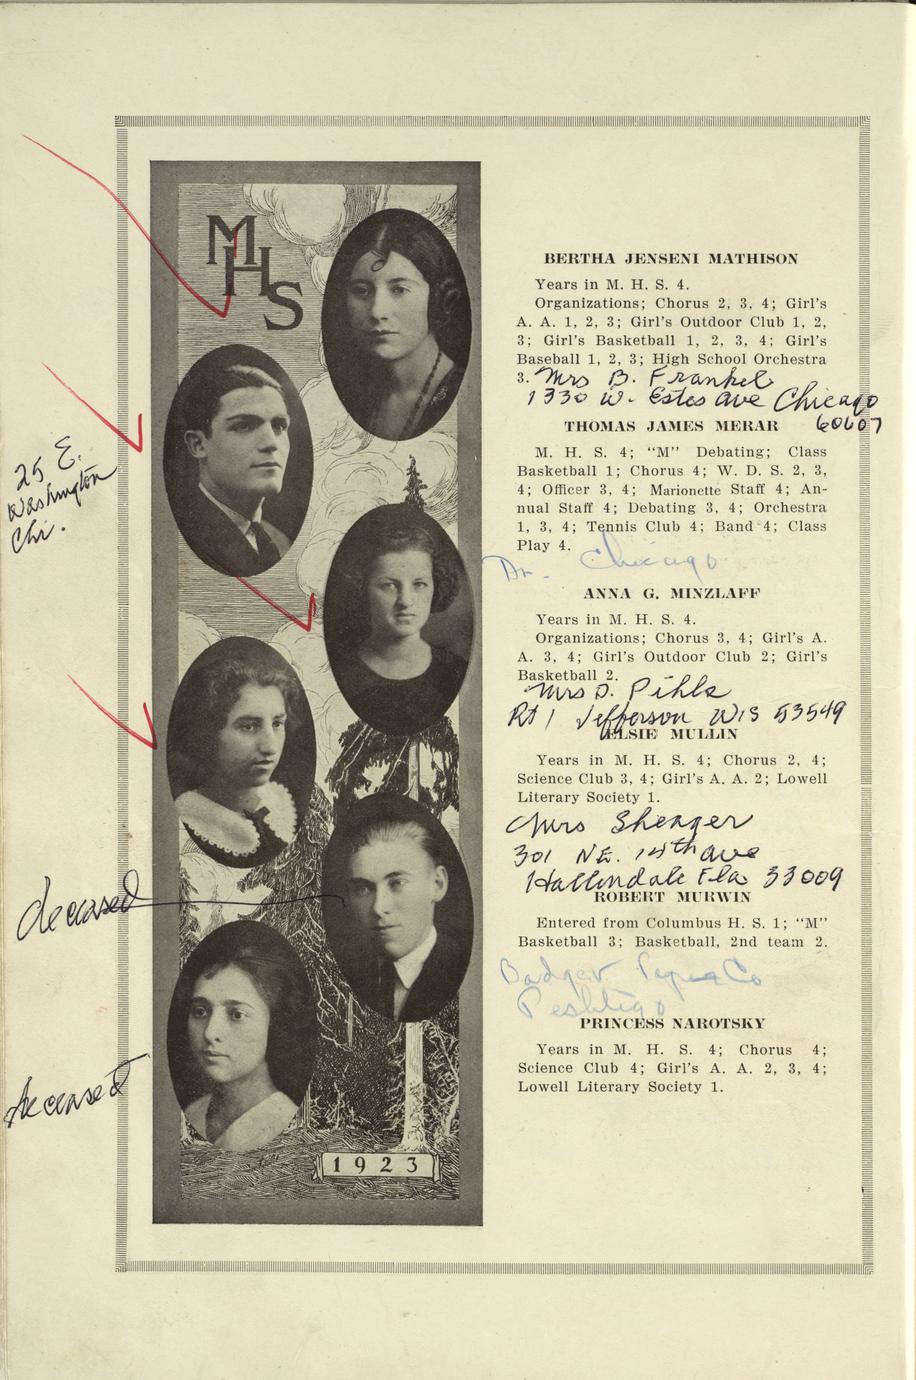 MHS
BERTHA JENSENI MATHISON
Years in M. H. S. 4.
Organizations; Chorus 2, 3, 4; Girl's
A. A. 1, 2, 3; Girl's Outdoor Club 1, 2,
3; Girl's Basketball 1, 2, 3, 4; Girl's
Baseball 1, 2, 3; High School Orchestra
3. Mrs B. Frankel
1330 W. Estes Ave Chicago
60607
THOMAS JAMES MERAR
M. H. S. 4; “M” Debating; Class
Basketball 1; Chorus 4; W. D. S. 2, 3,
4; Officer 3, 4; Marionette Staff 4; An-
nual Staff 4; Debating 3, 4; Orchestra
1, 3, 4; Tennis Club 4; Band 4; Class
Play 4.
Dr. Chicago
25 E.
Washington
Chi.
ANNA G. MINZLAFF
Years in M. H. S. 4.
Organizations; Chorus 3, 4; Girl's A.
A. 3, 4; Girl's Outdoor Club 2; Girl's
Basketball 2.
Mrs D. Pihls
Rt 1 Jefferson Wis 53549
ELSIE MULLIN
Years in M. H. S. 4; Chorus 2, 4;
Science Club 3, 4; Girl's A. A. 2; Lowell
Literary Society 1.
Mrs Shenger
301 N.E. 14th Ave
Hallendale Fla 33009
ROBERT MURWIN
Entered from Columbus H. S. 1; “M”
Basketball 3; Basketball, 2nd team 2.
Badger Paper Co
Peshtigo
deceased
PRINCESS NAROTSKY
Years in M. H. S. 4; Chorus 4;
Science Club 4; Girl's A. A. 2, 3, 4;
Lowell Literary Society 1.
deceased
1923